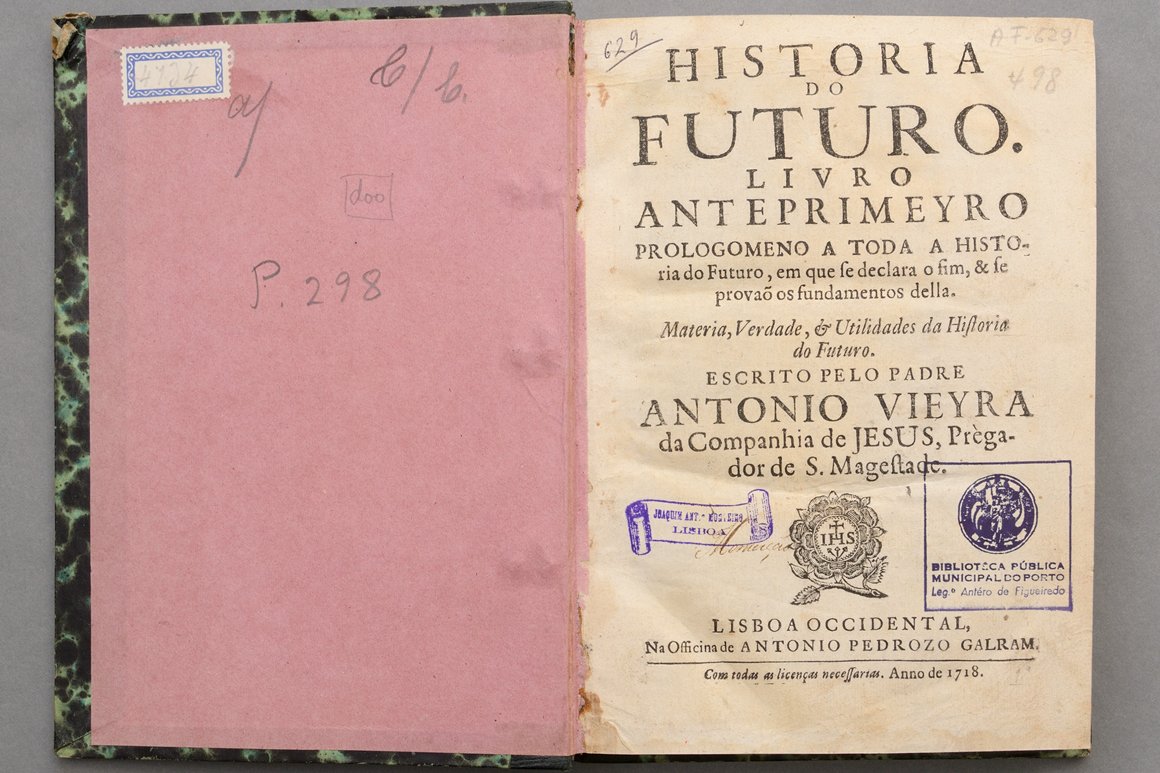 4724
a/
C/ C.
doo
P. 298
629
A F-629
498
HISTORIA
DO
FUTURO.
LIVRO
ANTEPRIMEYRO
PROLOGOMENO A TODA A HISTO-
ria do Futuro, em que ſe declara o fim, & ſe
provaõ os fundamentos della.
Materia, Verdade, & Utilidades da Hiſtoria
do Futuro.
ESCRITO PELO PADRE
ANTONIO VIEYRA
da Companhia de JESUS, Prèga-
dor de S. Mageſtade.
JOAQUIM ANT.º
LISBOA
IHS
BIBLIOTECA PÚBLICA
MUNICIPAL DO PORTO
Leg.º Antéro de Figueiredo
LISBOA OCCIDENTAL,
Na Officina de ANTONIO PEDROZO GALRAM.
Com todas as licenças neceſſarias. Anno de 1718.